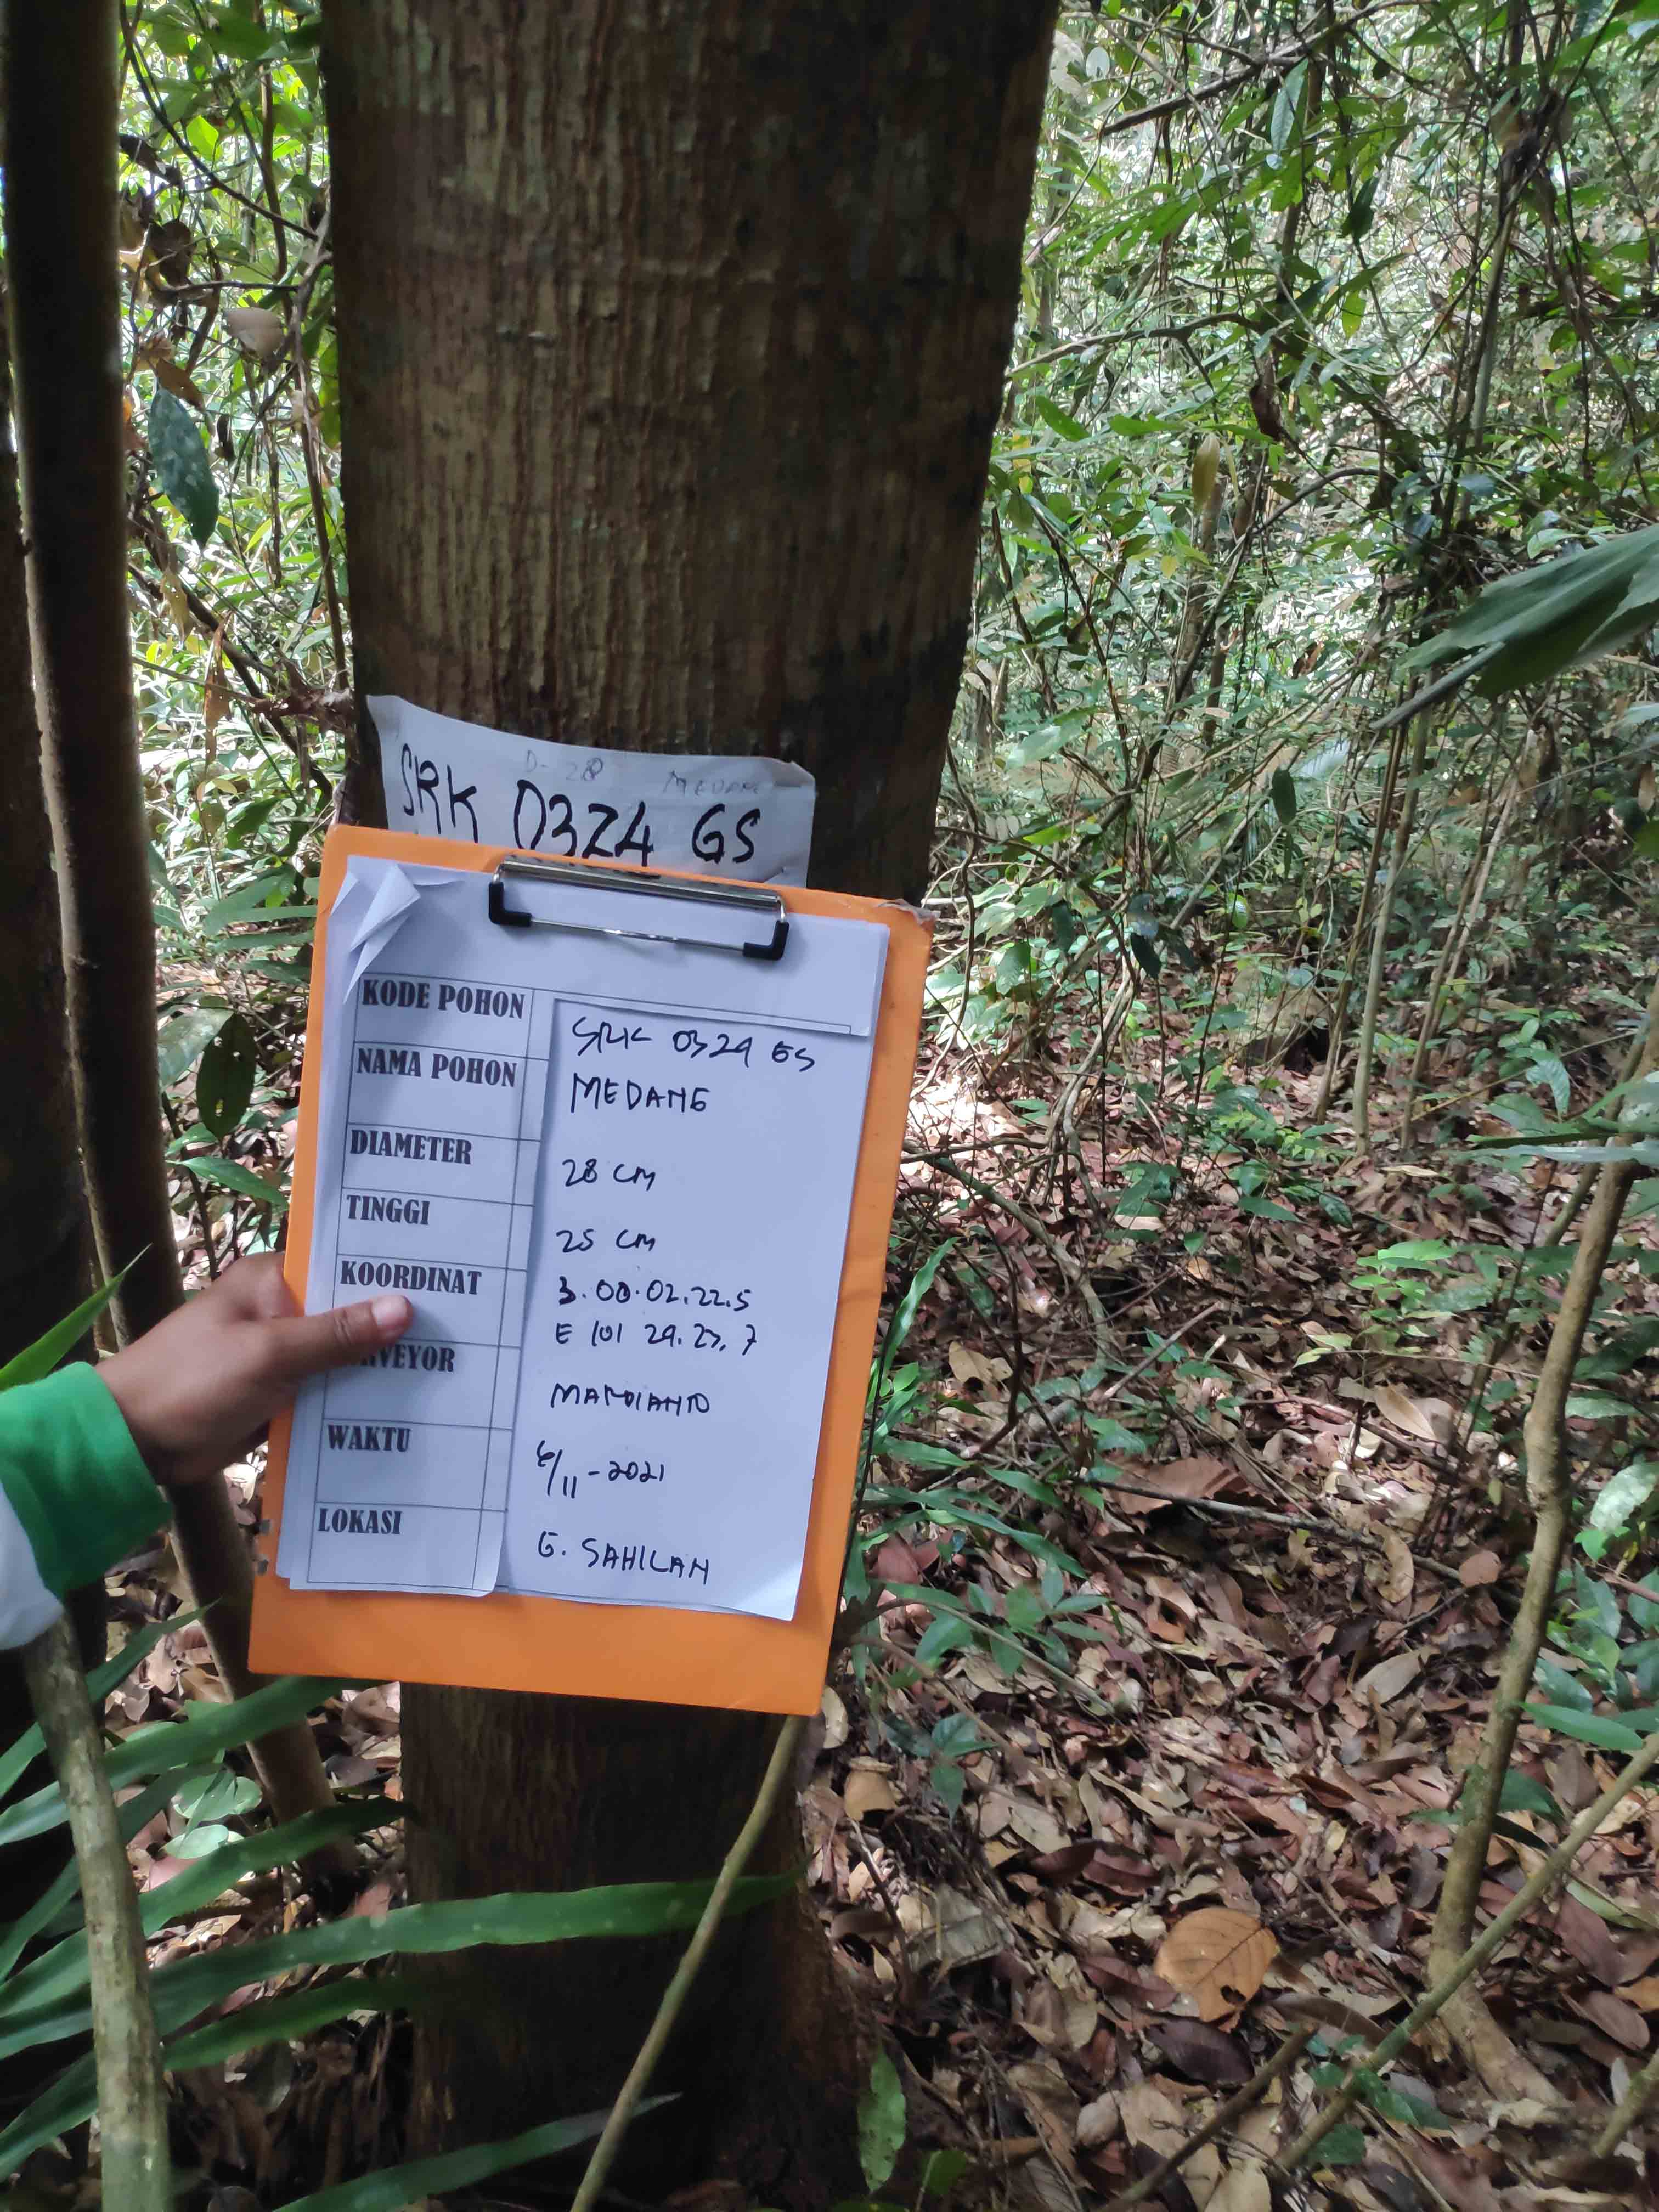 D- 28 MEDANG
SRK 0324 GS
KODE POHON SRK 0324 GS
NAMA POHON MEDANG
DIAMETER 28 CM
TINGGI 25 CM
KOORDINAT 00.02.22.5
E 101 29.27.7
VEYOR MARDIANTO
WAKTU 6/11-2021
LOKASI G. SAHILAN